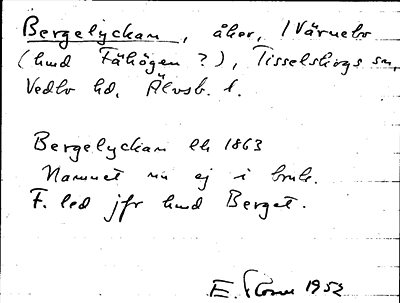 Bergelyckan, åker, 1 Värnebo
(hmd Fähögen ?), Tisselskogs sn,
Vedbo hd, Älvsb. l.
Bergelyckan lh 1863
Namnet nu ej i bruk.
F. led jfr hmd Berget.
E. 1952